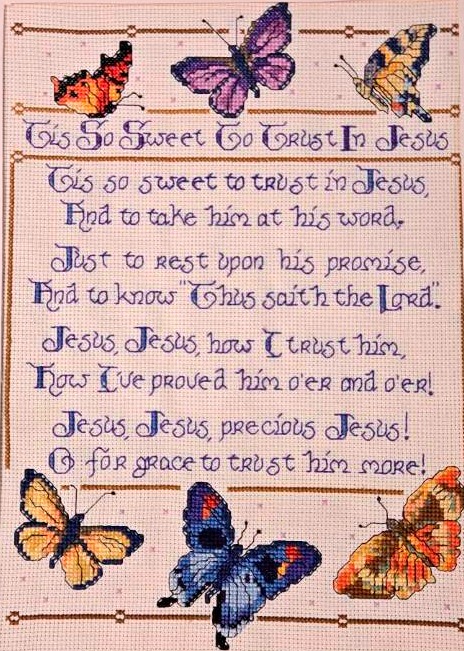 Tis So Sweet To Trust In Jesus
Tis so sweet to trust in Jesus,
And to take him at his word,
Just to rest upon his promise,
And to know "Thus saith the Lord".
Jesus, Jesus, how I trust him,
How I've proved him o'er and o'er!
Jesus, Jesus, precious Jesus!
O for grace to trust him more!